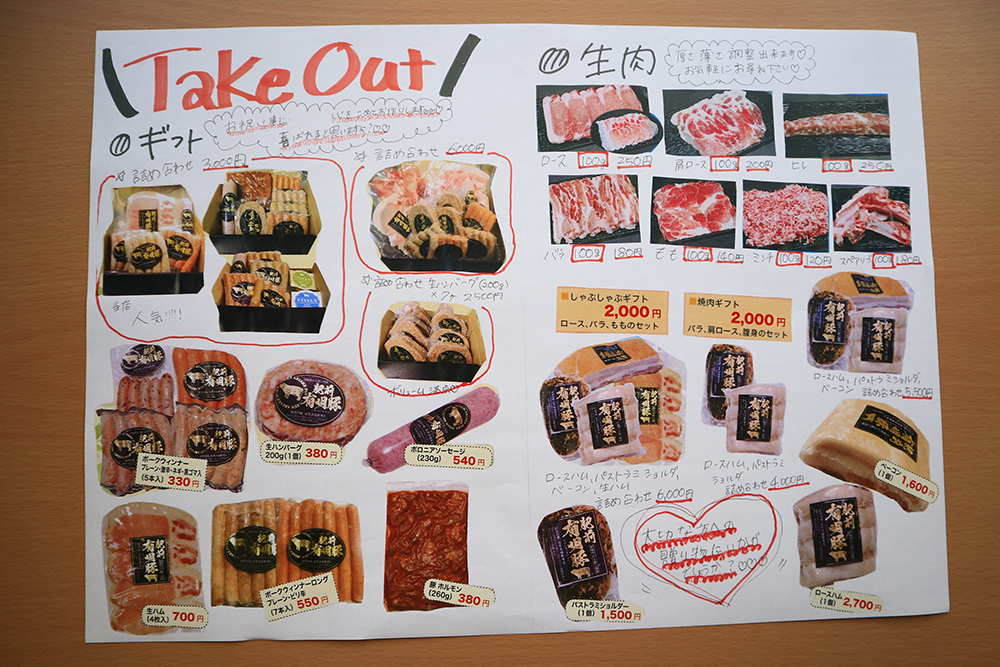 Take Out
ギフト
お祝い事に
喜ばれると思います♡♡
詰め合わせ 3,000円
当店
人気!!!!!
詰め合わせ 6,000円
詰め合わせ 生ハンバーグ(200g)
×7ケ 2,500円
ボリューム満点
肥前
有明豚
ポークウィンナー
プレーン・激辛・ネギ・黒ゴマ入
(5本入) 330円
生ハンバーグ
200g(1個) 380円
ボロニアソーセージ
(230g) 540円
生ハム
(4枚入) 700円
ポークウィンナーロング
プレーン・ピリ辛
(7本入) 550円
豚 ホルモン
(260g) 380円
生肉
厚さ薄さ調整出来ます♡
お気軽にお尋ね下さい♡
ロース 100g 250円
肩ロース 100g 200円
ヒレ 100g 250円
バラ 100g 180円
もも 100g 140円
ミンチ 100g 120円
スペアリブ 100g 180円
■しゃぶしゃぶギフト
2,000円
ロース、バラ、もものセット
■焼肉ギフト
2,000円
バラ、肩ロース、腹身のセット
ロースハム、パストラミショルダ、
ベーコン 詰め合わせ 5,500円
ロースハム、パストラミショルダ、
ベーコン、生ハム
詰め合わせ 6,000円
ロースハム、パストラミ
ショルダ
詰め合わせ 4,000円
ベーコン
(1個) 1,600円
大切な方への
贈り物にいかが
でしょうか?♡♡♡
パストラミショルダー
(1個) 1,500円
ロースハム
(1個) 2,700円